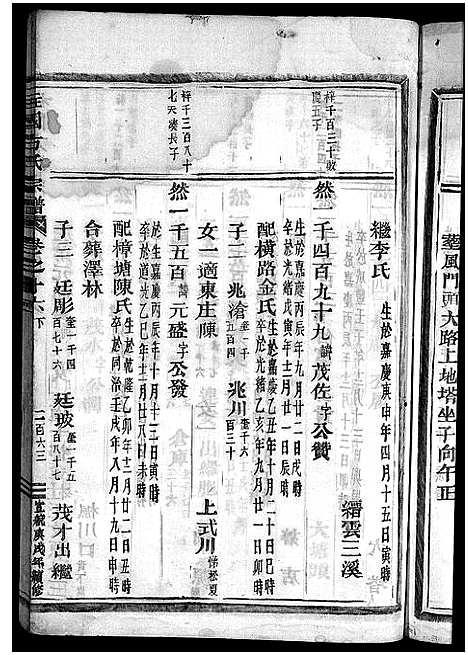 葬風門頭大路上地塔坐子向午正
繼李氏 生於嘉慶庚申年四月十五日寅時
縉雲三溪
梓千百二十敬
慶五子
然一千四百九十九 諱茂佐字公贊
生於嘉慶丙辰年九月廿二日戌時
卒於光緒戊寅年十二月廿八日丑時
配橫路金氏 生於嘉慶乙丑年十月二十日巳時
卒於光緒乙亥年十一月廿一日卯時
子二 兆滄 奎一千五百四 兆川 奎千六百三十
女一適東庄陳
上式川 係松夏
梓千三百八十
七天湊長子
然一千五百 元盛字公發
生於嘉慶丙辰年十月十三日寅時
卒於道光乙巳年十二月廿八日未時
配樟塘陳氏 生於乾隆乙卯年十二月廿二日丑時
卒於同治壬戌年八月十九日申時
合葬澤林
子三 廷彫 奎一千四百七十六 廷玻 奎一千五百八十七 茂才出繼
宗譜 卷之十六 下
二百六三
宣統庚戌年續修